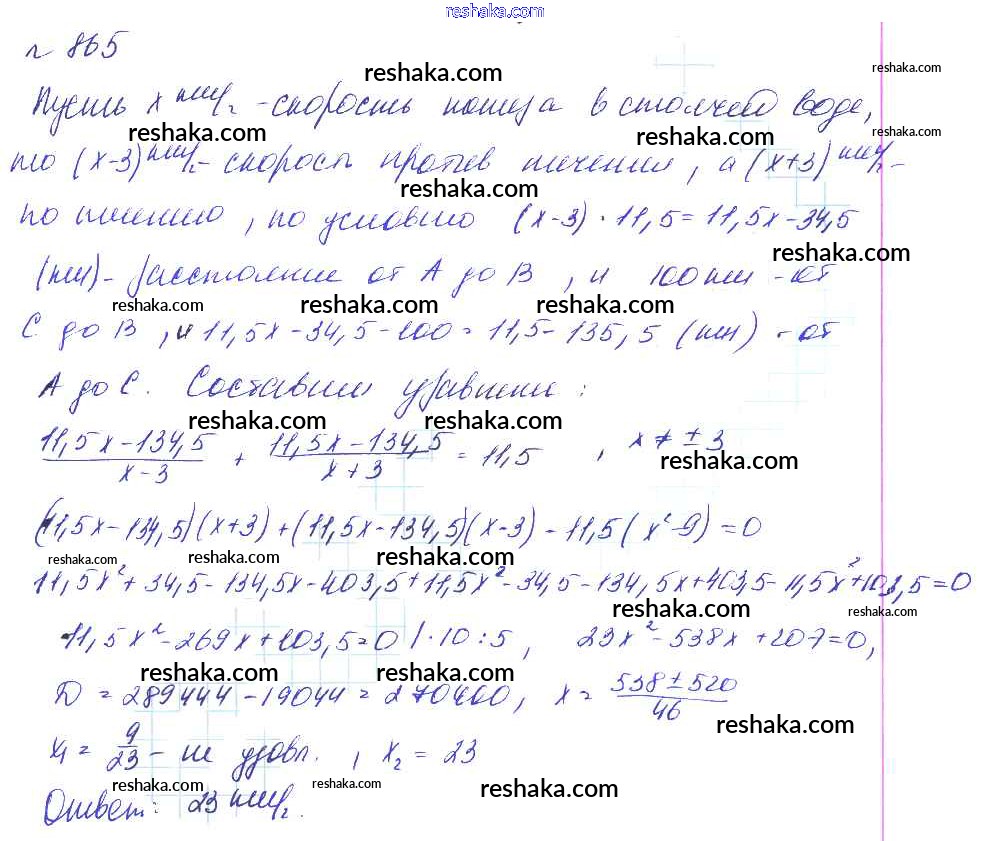 reshaka.com
№ 865
reshaka.com reshaka.com
Пусть x км/ч - скорость катера в стоячей воде,
reshaka.com reshaka.com reshaka.com
то (x-3) км/ч - скорость против течения, а (x+3) км/ч -
reshaka.com reshaka.com
по течению, по условию (x-3) · 11,5 = 11,5x - 34,5
reshaka.com
(км) - расстояние от A до B, и 100 км - от
reshaka.com reshaka.com reshaka.com reshaka.com
C до B, и 11,5x - 34,5 - 100 = 11,5 - 135,5 (км) - от
reshaka.com reshaka.com
A до C. Составим уравнени :
reshaka.com reshaka.com
(11,5x - 134,5)/(x - 3) + (11,5x - 134,5)/(x + 3) = 11,5 , x ≠ ± 3
reshaka.com
(11,5x - 134,5)(x+3) + (11,5x - 134,5)(x-3) - 11,5(x² - 9) = 0
reshaka.com reshaka.com reshaka.com reshaka.com
11,5x² + 34,5 - 134,5x - 403,5 + 11,5x² - 34,5 - 134,5x + 403,5 - 11,5x² + 103,5 = 0
reshaka.com reshaka.com
11,5x² - 269x + 103,5 = 0 | · 10 : 5 , 23x² - 538x + 207 = 0,
reshaka.com reshaka.com
D = 289444 - 19044 = 270400, x = (538 ± 520)/46
reshaka.com
x₁ = 9/23 - не удовл. , x₂ = 23
reshaka.com reshaka.com reshaka.com
Ответ: 23 км/ч.